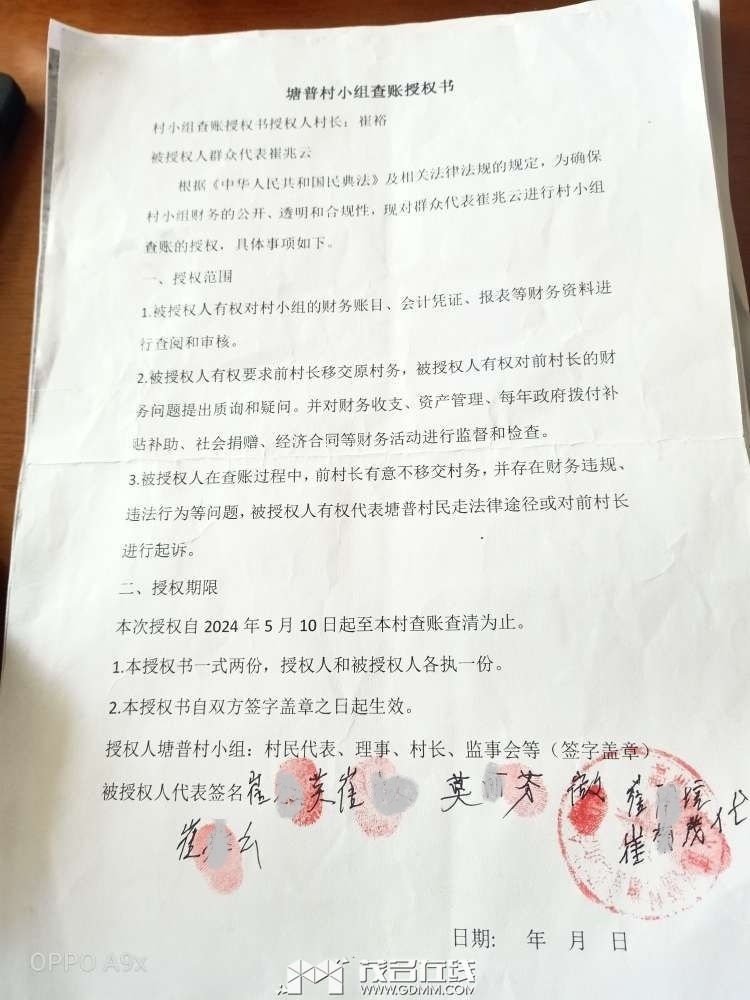 塘普村小组查账授权书
村小组查账授权书授权人村长：崔裕
被授权人群众代表崔兆云
根据《中华人民共和国民典法》及相关法律法规的规定，为确保
村小组财务的公开、透明和合规性，现对群众代表崔兆云进行村小组
查账的授权，具体事项如下。
一、授权范围
1.被授权人有权对村小组的财务账目、会计凭证、报表等财务资料进
行查阅和审核。
2.被授权人有权要求前村长移交原村务，被授权人有权对前村长的财
务问题提出质询和疑问。并对财务收支、资产管理、每年政府拨付补
贴补助、社会捐赠、经济合同等财务活动进行监督和检查。
3.被授权人在查账过程中，前村长有意不移交村务，并存在财务违规、
违法行为等问题，被授权人有权代表塘普村民走法律途径或对前村长
进行起诉。
二、授权期限
本次授权自 2024 年 5 月 10 日起至本村查账查清为止。
1.本授权书一式两份，授权人和被授权人各执一份。
2.本授权书自双方签字盖章之日起生效。
授权人塘普村小组：村民代表、理事、村长、监事会等（签字盖章）
被授权人代表签名 崔 英 崔 莫 芳 崔
崔 云 崔 茂代
日期： 年 月 日
OPPO A9x
茂名在线
WWW.GDMM.COM